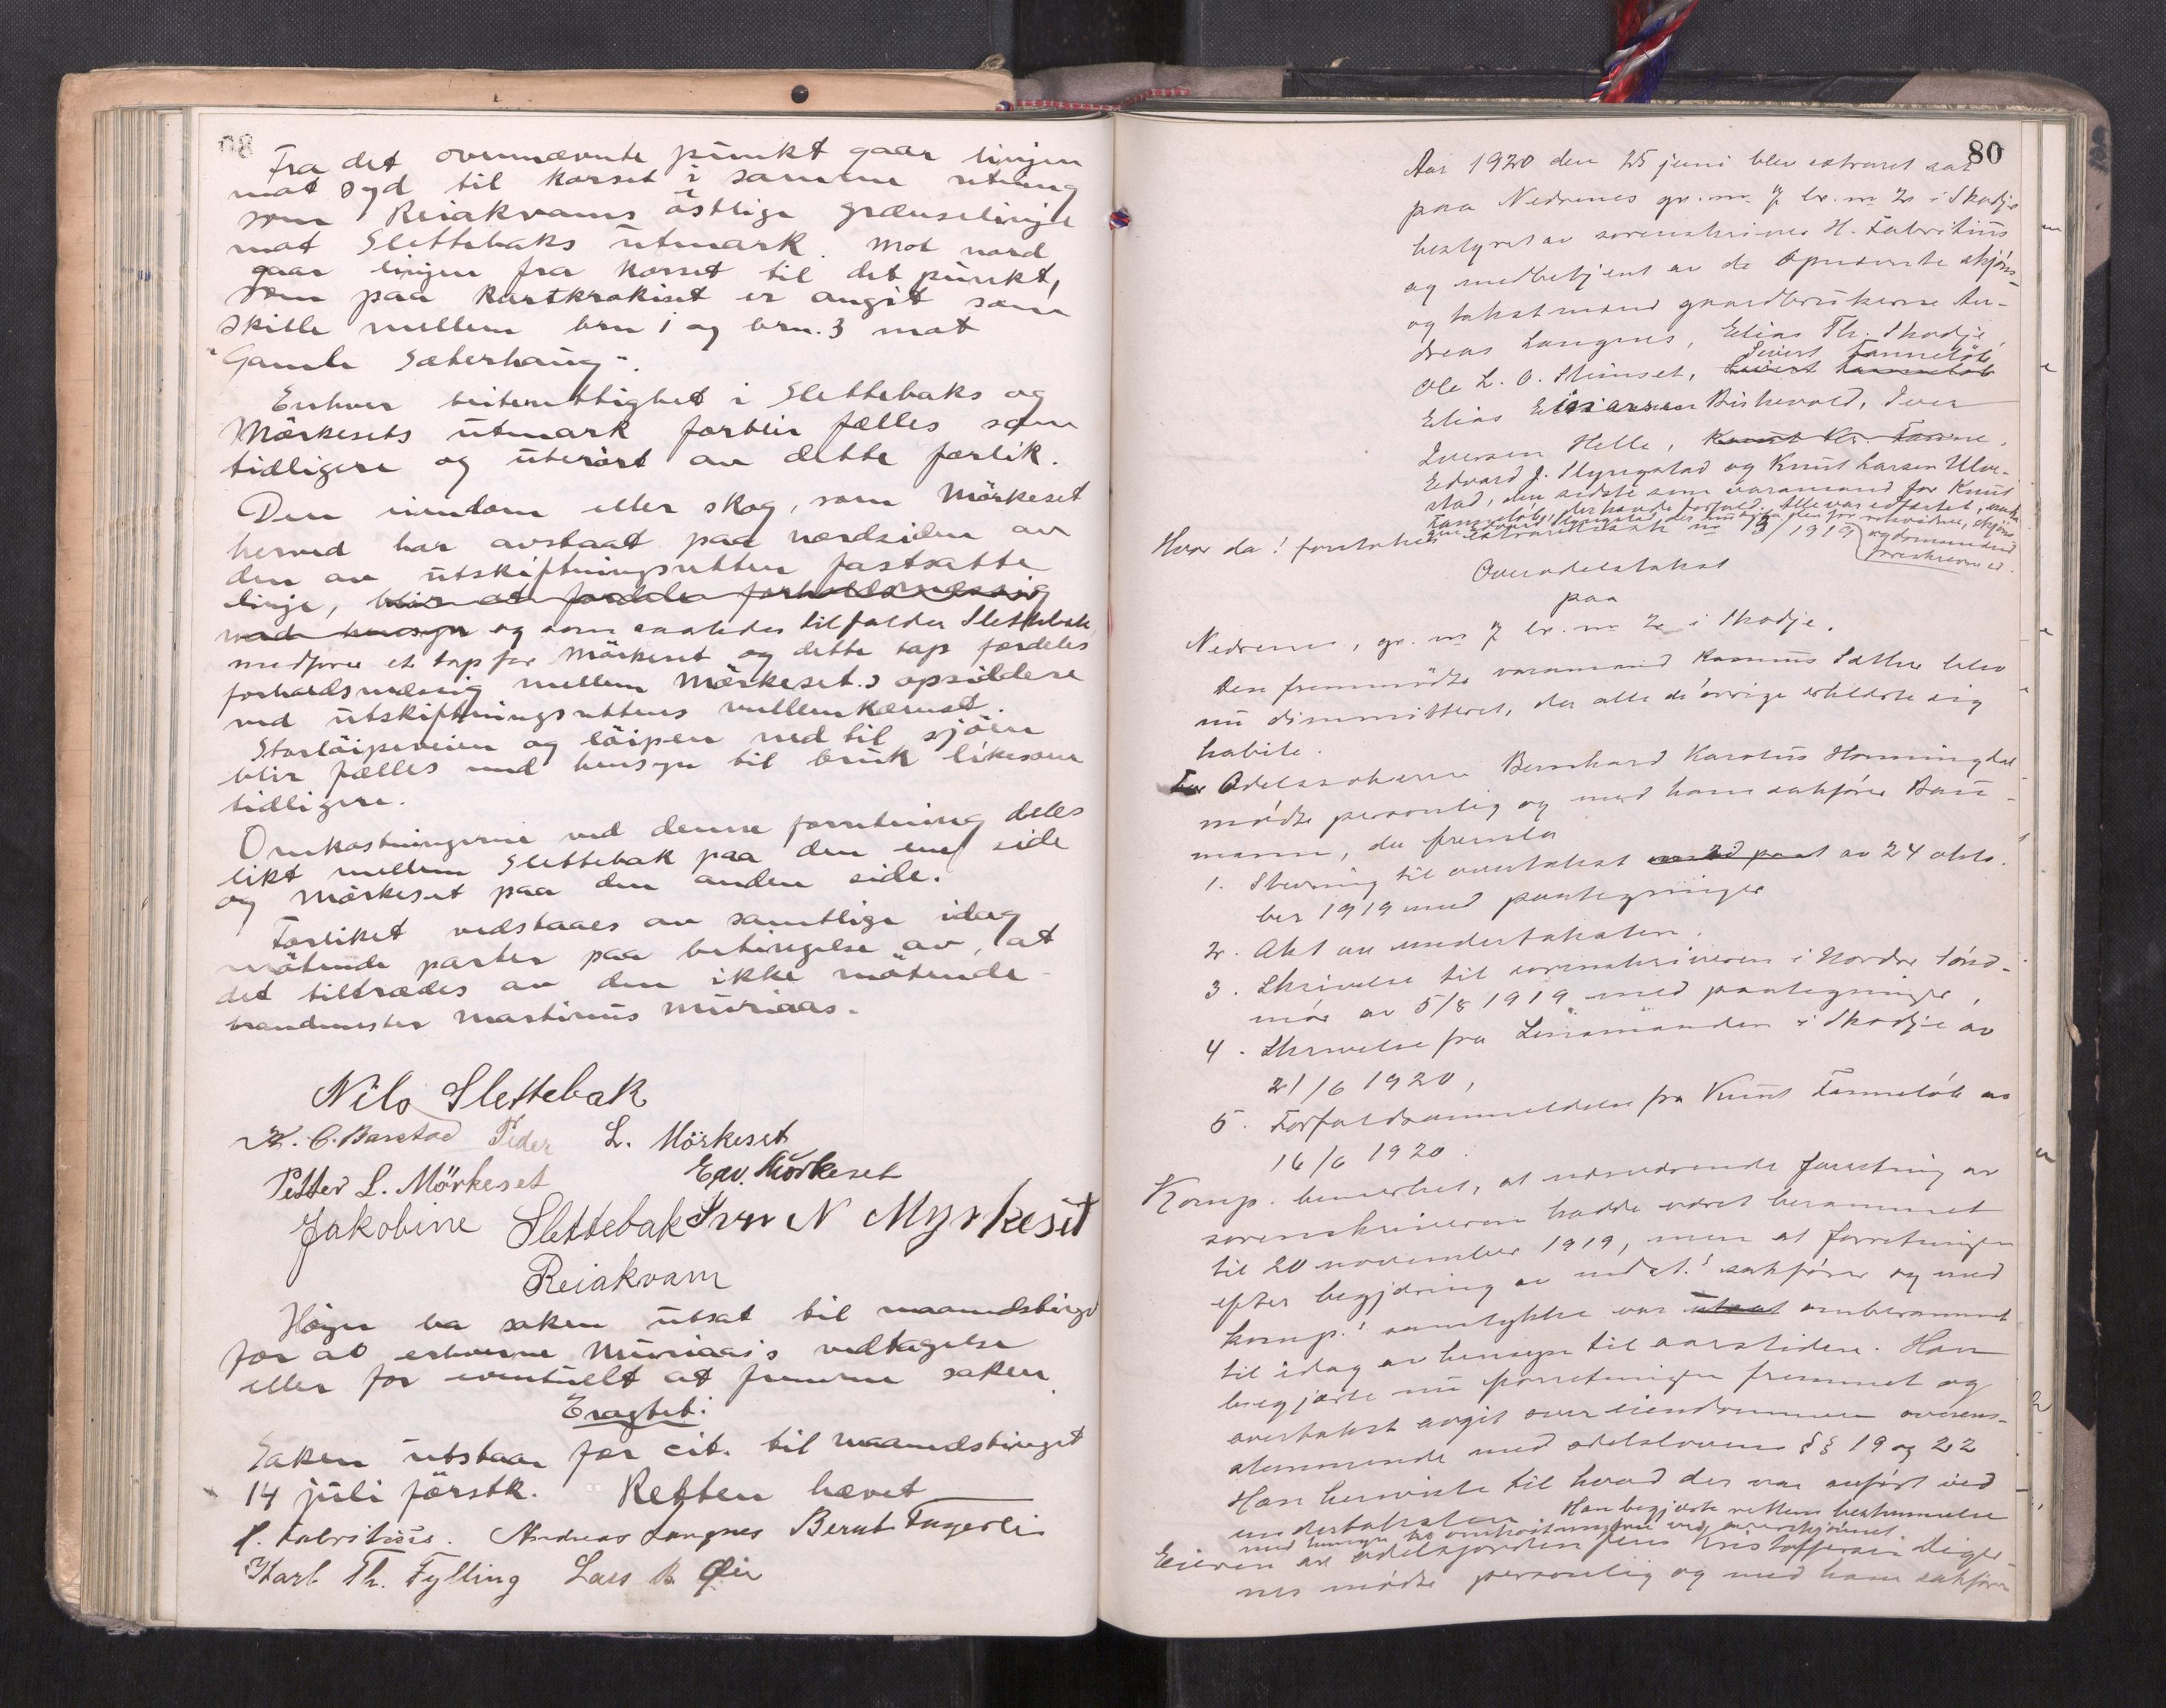 Fra det ovennævnte punkt gaar linjen
mot syd til korset i samme retning
som Reiakvams östlige grænselinje
mot Slettebaks utmark. Mot nord
gaar linjen fra korset til det punkt,
som paa kartkrokiset er angit som
skille mellem brn 1 og brn. 3 mot
"Gamle Sæterhaug".
Enhver beiterettighet i Slettebaks og
Mørkesets utmark forblir fælles som
tidligere og uberørt av dette forlik.
Den eiendom eller skog, som Mörkeset
herved har avstaat paa nordsiden av
den av utskiftningsretten fastsatte
linje, blir at fordele forholdsmæssig
med hensyn og som saaledes tilfalder Slettebak,
medfører et tap for Mörkeset og dette tap fordeles
forholdsmæssig mellem Mørkeset.s opsiddere
ved utskiftningsrettens mellemkomst.
Storlöipeveien og löipen ned til sjöen
blir fælles med hensyn til bruk likesom
tidligere.
Omkostningerne ved denne forretning deles
likt mellem Slettebak paa den ene side
og Mørkeset paa den anden side.
Forliket vedstaaes av samtlige idag
mötende parter paa betingelse av, at
det tiltrædes av den ikke mötende
brandmester Martinus Muriaas.
Nils Slettebak
K. O. Barstad Peder L. Mörkeset
Petter L. Mörkeset Edv. Mörkeset
Jakobine Slettebak Iver N Myrkeset
Reiakvam
Höyer ba saken utsat til maanedstinget
for at erhverve Muriaas's vedtagelse
eller for eventuelt at fremme saken.
Eragtet:
Saken utstaar for cit. til maanedstinget
14 juli förstk. Retten hævet
H. Fabritius. Andreas Langnes Bernt Fagerli
Karl Th. Fylling Lars B. Øie
80
Aar 1920 den 25 juni blev extraret sat
paa Nedrenes gr. nr 7 br. nr 2 i Skodje
bestyret av sorenskriver H. Fabritius
og medbetjent av de opnævnte skjöns-
og takstmænd gaardbrukerne An-
dreas Langnes, Elias Th. Skodje,
Sivert Fannelöb
Ole L. O. Stimset, Sivert Fannelöb
Elias Eliasen Bishevold, Iver
Iversen Helle, Knut Kr. Fanne,
Edvard J. Flyngstad og Knut Larsen Ulve-
stad, den sidste som varamand for Knut
Fannelöb, der havde forfald. Alle var edfæstet,
Hvor da! foretokes extraretssak nr 13/1919
Overodelstakst
paa
Nedrenes, gr. nr 7 br. nr 2 i Skodje.
Den fremmödte varamand Rasmus Sæther blev
nu dimmitteret, da alle de övrige erklærte sig
habile.
For Odelssökeren Bernhard Karolus Honningdal
mödte personlig og med ham sakfører Bau-
mann, der fremla
1. Stevning til overtakst med paat av 24 okto-
ber 1919 med paategninger
2. Akt av undertaksten.
3. Skrivelse til sorenskriveren i Nordre Sönd-
mör av 5/8 1919 med paategninger,
4. Skrivelse fra Lensmanden i Skodje av
21/6 1920,
5. Forfaldsanmeldelse fra Knut Fannelöb av
16/6 1920.
Komp. bemerket, at nærværende forretning av
sorenskriveren hadde været berammet
til 20 november 1919, men at forretningen
efter begjæring av motp.s sakförer og med
komp.s samtykke var utsat omberammet
til idag av hensyn til aarstiden. Han
begjærte nu forretningen fremmet og
overtakst avgit over eiendommen overens-
stemmende med odelsloven §§ 19 og 22
Han henviste til hvad der var anført ved
undertaksten Han begjærte rettens bestemmelse
med hensyn til omkostningerne ved overskjönnet.
Eieren av odelsjorden Jens Kristoffersen Diger-
nes mödte personlig og med ham sakfører